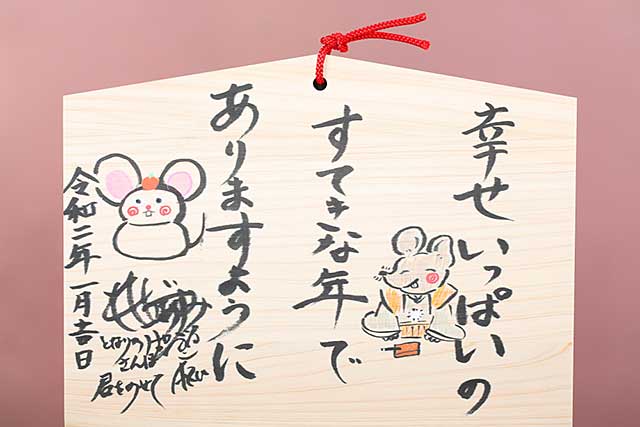 幸せいっぱいの
すてきな年で
ありますように
令和二年一月吉日
となりのトトロ
さんぽ
君をのせて